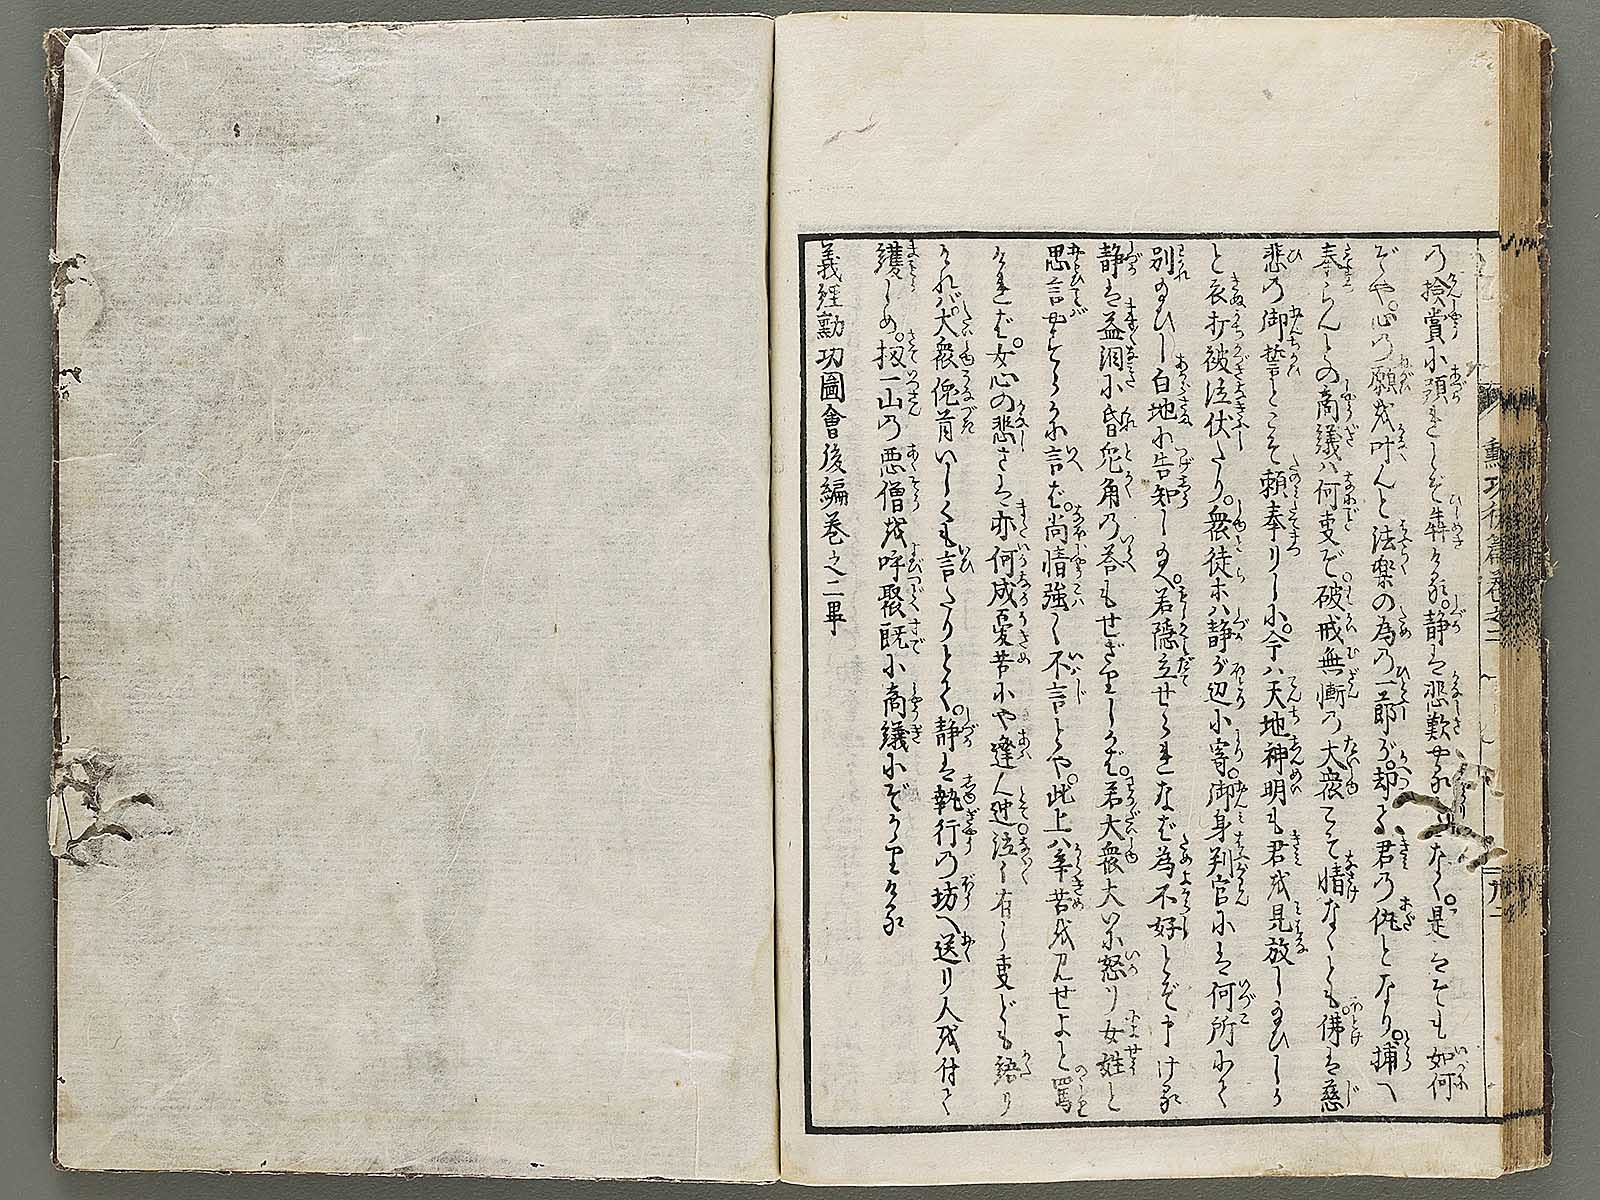 の撿賞に預れしぞ犇ける。静は悲歎やるなく。是はそも如何
ぞや。心の願を叶んと法楽の為の一節が。却て君の仇となり。捕へ
奉らんとの商議ハ何事ぞ。破戒無慚の大衆こそ情なくとも。佛は慈
悲の御誓とこそ頼奉りしに。今ハ天地神明も君を見放し給ひしか
と衣打被泣伏たり。衆徒木ハ静が辺に寄。御身判官には何所にて
別給ひし白地に告知し給へ。若隠立せられなば為不好とぞ申ける
静は益涙に昏兎角の答もせざりしかば。若大衆大に怒り女姓と
思言やはらかに言ば。尚情強く不言とや。此上ハ辛苦を見せよと罵
ければ。女心の悲さは亦何成憂苦にや逢人迚泣く有し事ども語り
ければ。大衆俛首いしくも言たりとて。静は執行の坊へ送り人を付て
護しめ。扨一山の悪僧を呼聚既に商議にぞかゝりける
義經勳功圖會後編巻之二畢
勲功後篇巻之二